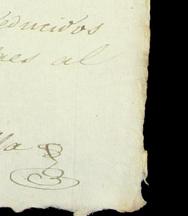 educidos
es al
lla